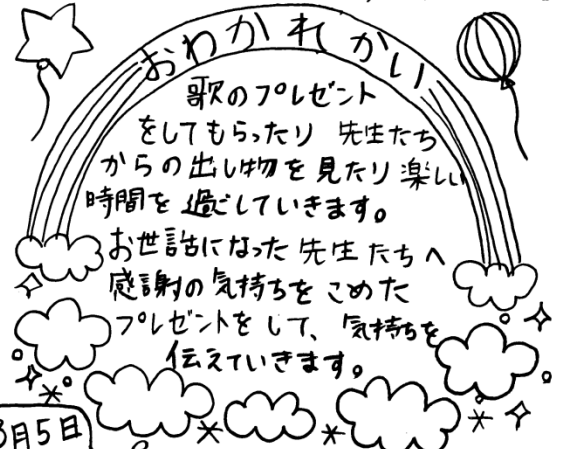 おわかれかい
歌のプレゼント
をしてもらったり 先生たち
からの出し物を見たり楽しい
時間を過ごしていきます。
お世話になった先生たちへ
感謝の気持ちをこめた
プレゼントをして、気持ちを
伝えていきます。
3月5日